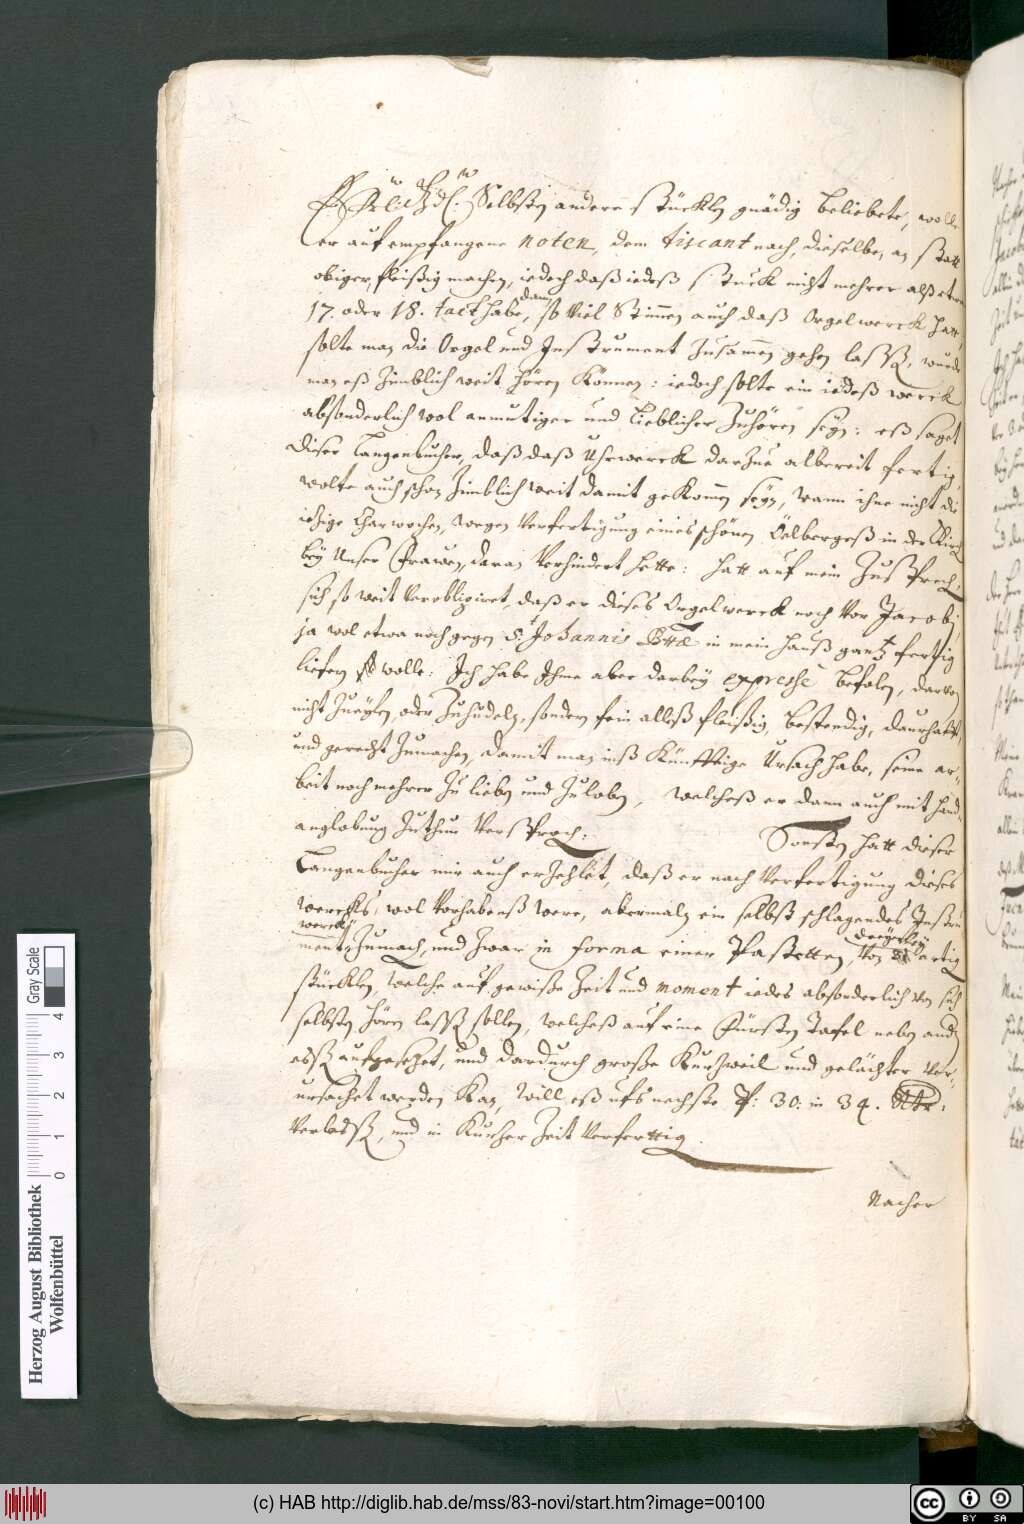 E. Frl: Gd: Selbsten andere stückln gnädig beliebete, wolle
er auf empfangene noten, dem discant nach, dieselbe, an statt
obiger, fleißig machen, iedoch daß iedeß stuck nicht mehrer alß etwa
17. oder 18. tact habe, dann so viel Stimmen auch daß Orgelwerck hatt,
solte man die Orgel und Instrument zusammen gehen lassen, wurde
man eß zimblich weit hören können: iedoch solte ein iedeß werck
absonderlich wol anmutiger und lieblicher zuhören seyn: eß saget
dieser Langenbucher, daß daß Uhrwerck darzue albereit fertig,
wolte auch schon zimblich weit damit gekommen seyn, wann ihne nicht die
iezige Charwochen, wegen verfertigung eines schönen Öelbergeß in der Kirch
bey Unser Frawen, daran verhindert hette: hatt auf mein zusprechen
sich so weit verobligiret, daß er dieses Orgelwerck noch vor Jacobi,
ja wol etwa noch gegen S. Johannis in mein hauß gantz fertig
liefern wolle: Ich habe Ihme aber darbey expresse befolen, darvon
nicht zueylen, oder zuhudeln, sondern fein alleß fleißig, bestendig, daurhafft,
und gerecht zumachen, damit man inß Künfftige Ursach habe, seine ar-
beit noch mehrer zu lieben und zu loben, welcheß er dann auch mit hand-
anglobung zuthun versproch:
Sonsten hatt dieser
Langenbucher mir auch erzehlet, daß er nach verfertigung dieses
wercks, wol vorhabenß were, abermaln ein selbst schlagendes Instru
werck
ment zumachen, und zwar in forma einer Pasteten, von dreyerley artig
stückln, welche auf gewiße zeit und moment iedes absonderlich von sich
selbsten hören lassen sollen, welcheß auf eine Fürsten Tafel neben andern
eßen aufgesetzet, und dardurch große Kurzweil und gelächter ver-
ursachet werden kan, will eß ufs nechste P: 30. in 34.
verlassen, und in kurzer zeit verfertig.
Nacher
Herzog August Bibliothek
Wolfenbüttel
Gray Scale
0 1 2 3 4
(c) HAB http://diglib.hab.de/mss/83-novi/start.htm?image=00100
cc BY SA